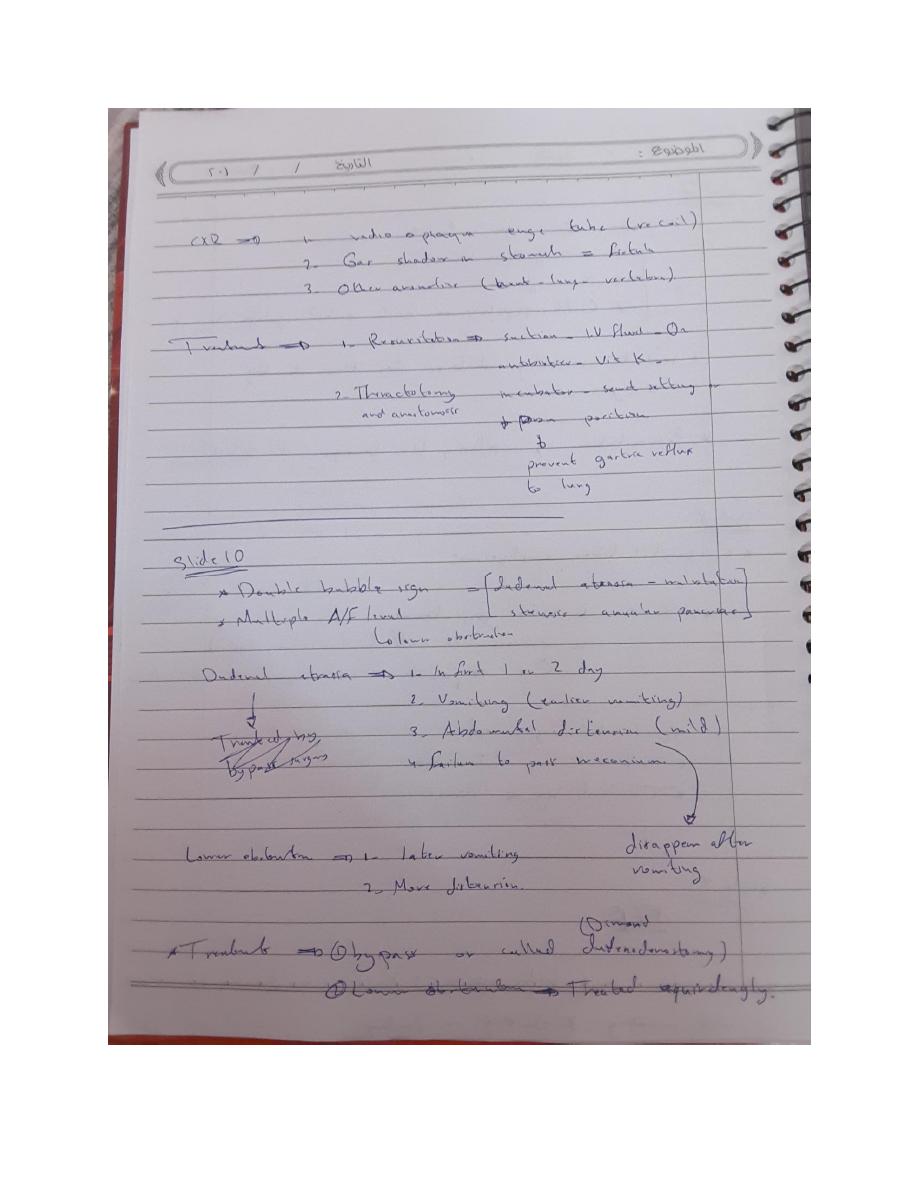 الموضوع :
التاريخ / / ٢٠١
CXR ⇒ 1- radio opaque tube (recoil)
2- Gas shadow in stomach = fistula
3- Other anomalies (heart - lung - vertebra)
Treatment ⇒ 1- Resuscitation ⇒ suction - I.V fluid - O2
antibiotics - Vit K -
2- Thoractotomy and anastomosis
incubator - setting
position
prevent gastric reflux
to lung
Slide 10
* Double bubble sign = [dudenal atresia - malrotation
stenosis - annular pancreas]
* Multiple A/F level
lower obstruction
Dudenal atresia ⇒ 1- In first 1 or 2 day
2- Vomiting (earlier vomiting)
3- Abdominal distension (mild)
Treated by
bypass surgery
4- failure to pass meconium
disappear after
vomiting
Lower obstruction ⇒ 1- later vomiting
2- More distension.
* Treatment ⇒ ① bypass or called (Dimond
dudenodenostomy)
② Lower obstruction → Treated